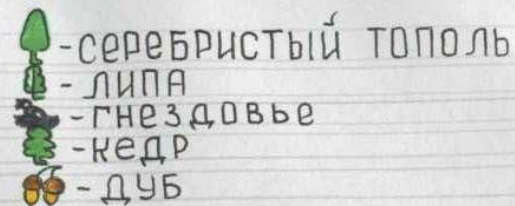 - СЕРЕБРИСТЫЙ ТОПОЛЬ
- ЛИПА
- ГНЕЗДОВЬЕ
- КЕДР
- ДУБ